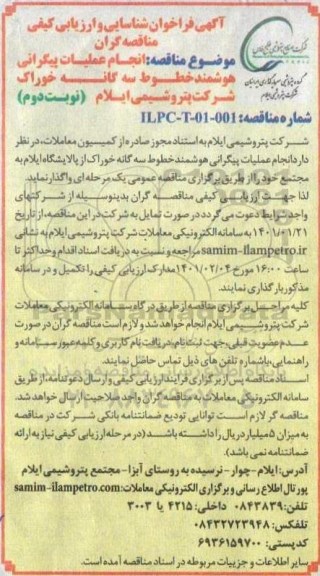 آگهی فراخوان شناسایی و ارزیابی کیفی
مناقصه گران
موضوع مناقصه: انجام عملیات پیگرانی
هوشمند خطوط سه گانه خوراک
شرکت پتروشیمی ایلام (نوبت دوم)
شماره مناقصه: ILPC-T-01-001
شرکت پتروشیمی ایلام به استناد مجوز صادره از کمیسیون معاملات، در نظر
دارد انجام عملیات پیگرانی هوشمند خطوط سه گانه خوراک از پالایشگاه ایلام به
مجتمع خود را از طریق برگزاری مناقصه عمومی یک مرحله ای واگذار نماید.
لذا جهت ارزیابی کیفی مناقصه گران بدینوسیله از شرکتهای
واجد شرایط دعوت می گردد در صورت تمایل به شرکت در این مناقصه، از تاریخ
۱۴۰۱/۰۱/۲۱ به سامانه الکترونیکی معاملات شرکت پتروشیمی ایلام به نشانی
samim-ilampetro.ir مراجعه و نسبت به دریافت اسناد اقدام و حداکثر تا
ساعت ۱۶:۰۰ مورخ ۱۴۰۱/۰۲/۰۴ مدارک ارزیابی کیفی را تکمیل و در سامانه
مذکور بارگذاری نمایند.
کلیه مراحل برگزاری مناقصه از طریق درگاه سامانه الکترونیکی معاملات
شرکت پتروشیمی ایلام انجام خواهد شد و لازم است مناقصه گران در صورت
عدم عضویت قبلی، جهت ثبت نام، دریافت نام کاربری و کلمه عبور سامانه و
راهنمایی، با شماره تلفن های ذیل تماس حاصل نمایند.
اسناد مناقصه پس از برگزاری فرایند ارزیابی کیفی و ارسال دعوتنامه، از طریق
سامانه الکترونیکی معاملات به مناقصه گران واجد صلاحیت ارسال خواهد شد.
مناقصه گر لازم است توانایی تودیع ضمانتنامه بانکی شرکت در مناقصه
به میزان ۵ میلیارد ریال را داشته باشد (در مرحله ارزیابی کیفی نیاز به ارائه
ضمانتنامه نمی باشد).
آدرس: ایلام - چوار - نرسیده به روستای آبزا - مجتمع پتروشیمی ایلام
پورتال اطلاع رسانی و برگزاری الکترونیکی معاملات: samim-ilampetro.com
تلفن: ۰۸۴۳۸۳۹ داخلی: ۴۲۱۵ یا ۳۰۰۳
تلفکس: ۰۸۴۳۲۷۲۳۹۴۸
کدپستی: ۶۹۳۶۱۵۹۷۰۰
سایر اطلاعات و جزییات مربوطه در اسناد مناقصه آمده است.